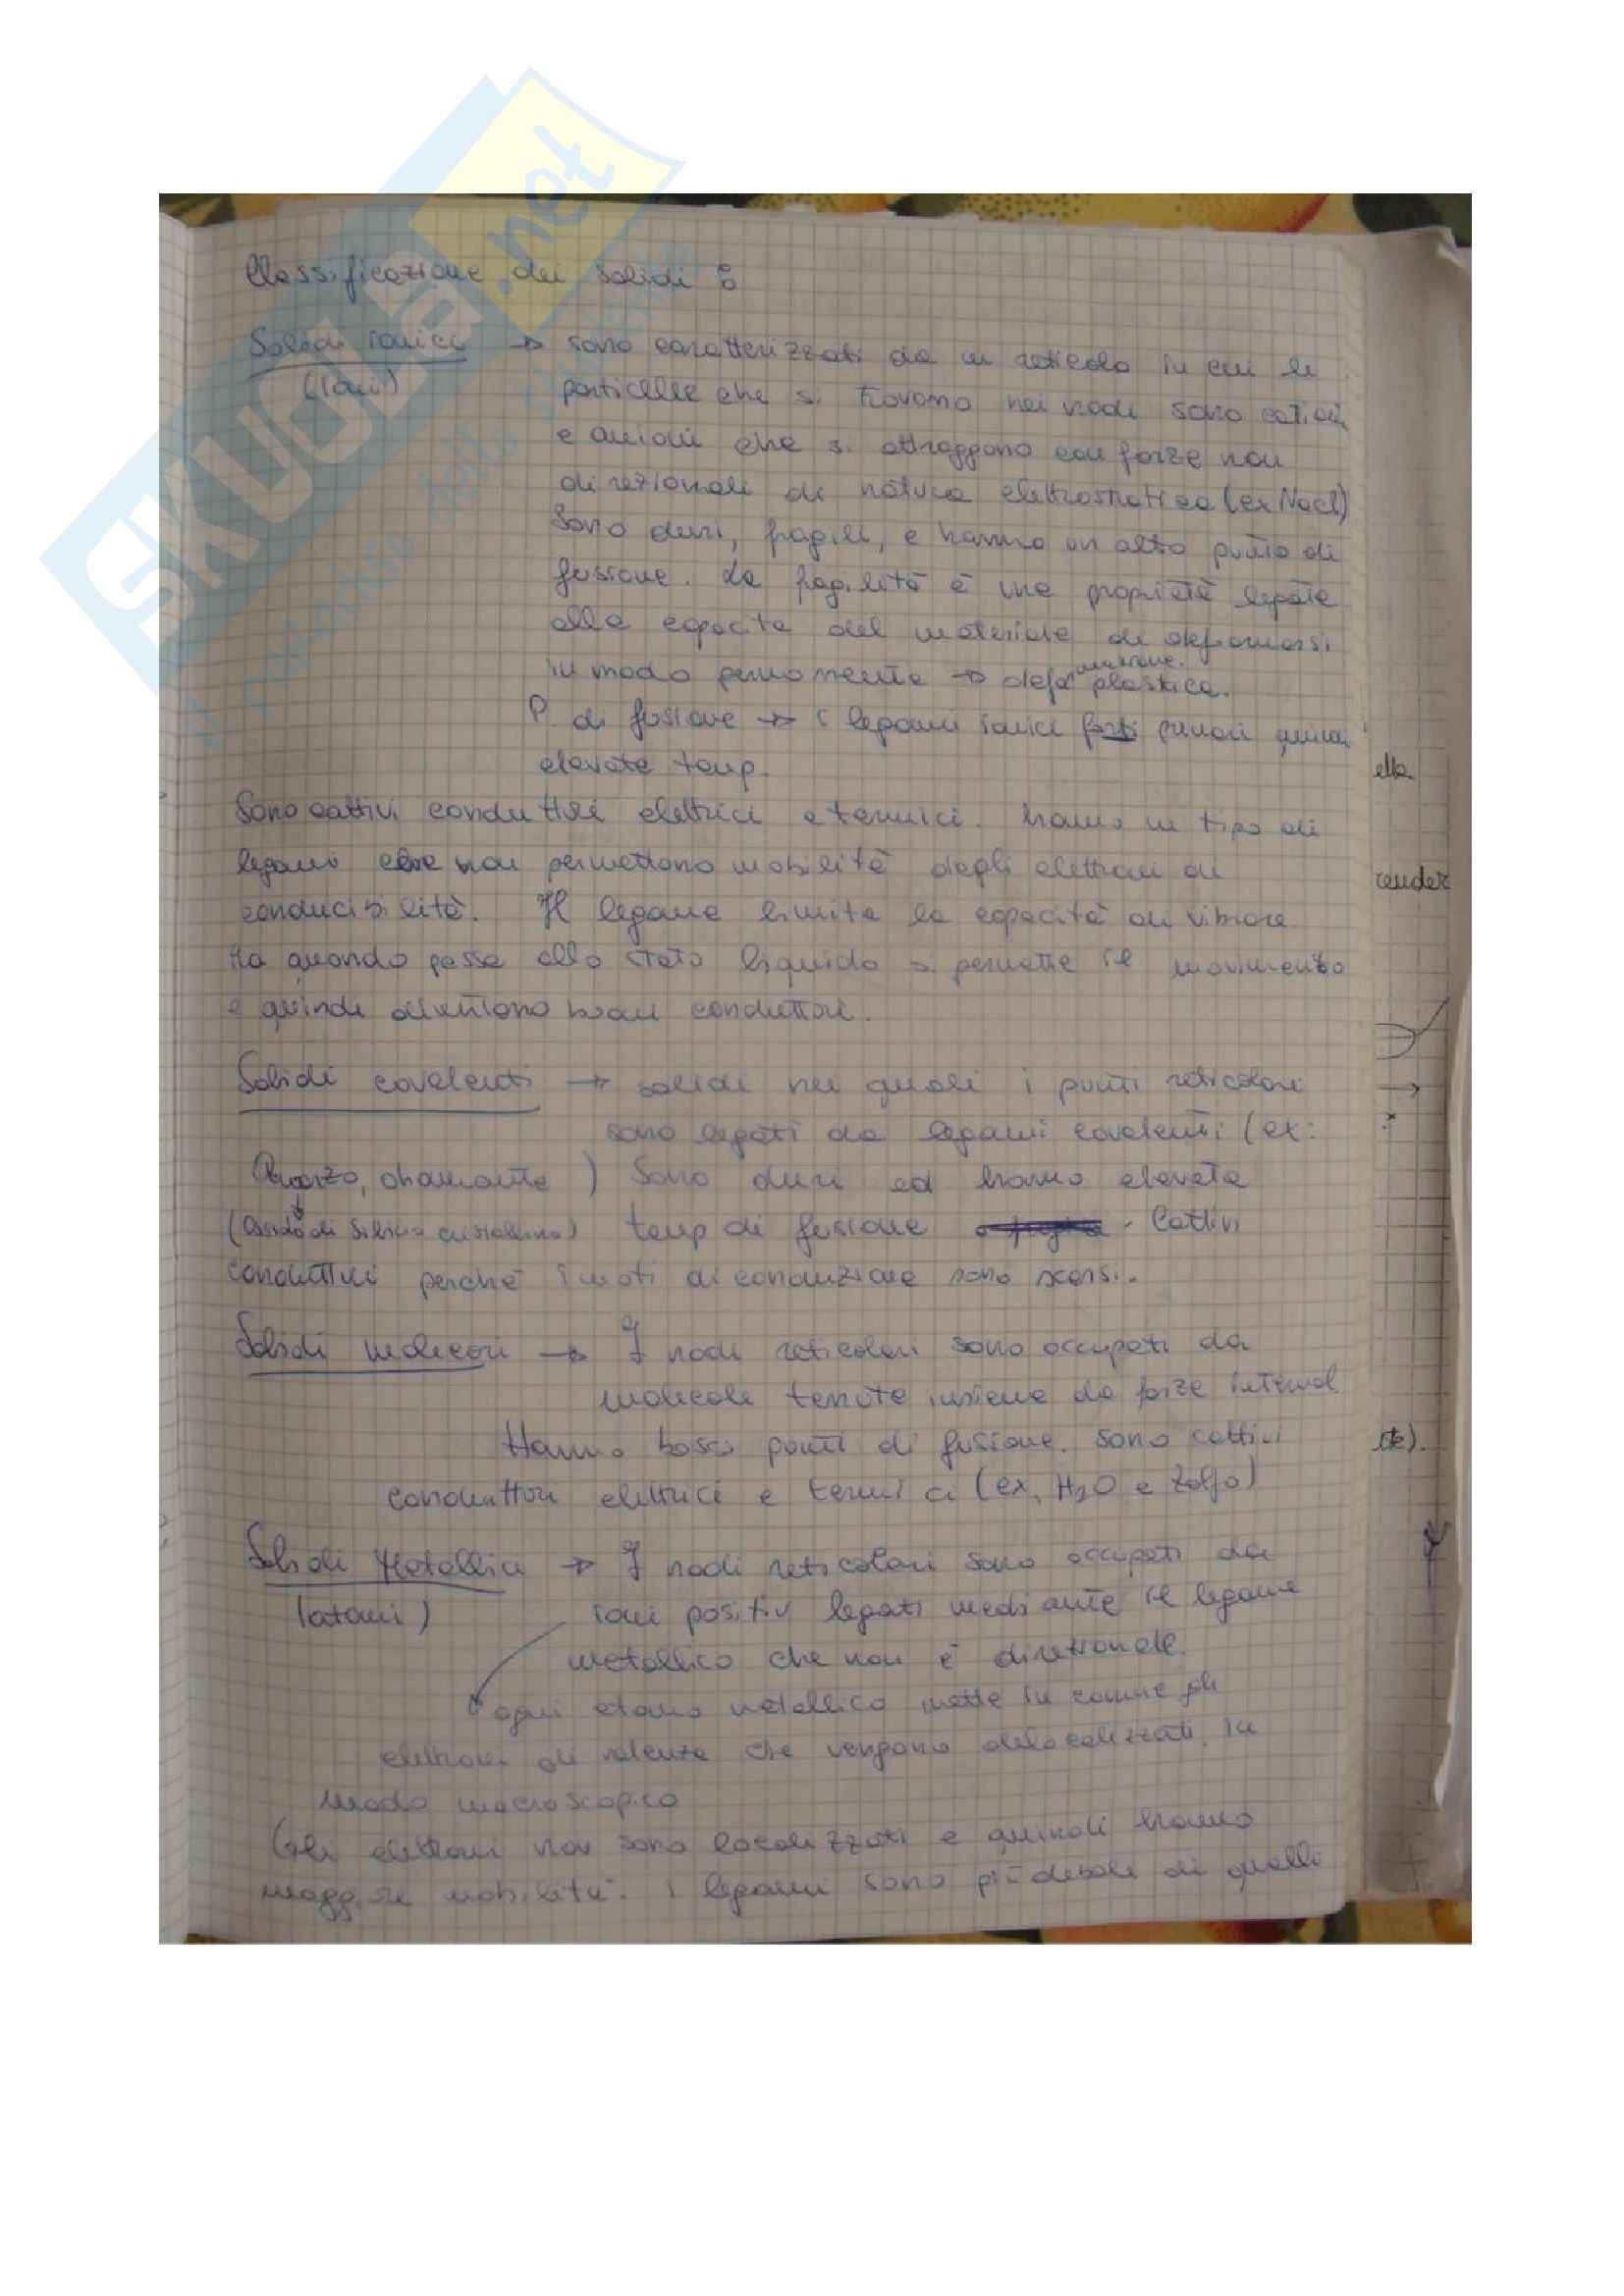 SKUOLA.net
Classificazione dei solidi :
Solidi ionici → sono caratterizzati da un reticolo in cui le
(ioni) particelle che si trovano nei nodi sono cationi
e anioni che si attraggono con forze non
direzionali di natura elettrostatica (ex NaCl)
Sono duri, fragili, e hanno un alto punto di
fusione. La fragilità è una proprietà legata
alla capacità del materiale di deformarsi
in modo permanente → deformazione plastica.
P. di fusione → i legami ionici forti quindi
elevate temp.
Sono cattivi conduttori elettrici e termici. hanno un tipo di
legami che non permettono mobilità degli elettroni di
conducibilità. Il legame limita la capacità di vibrare
Ma quando passa allo stato liquido si permette il movimento
e quindi diventano buoni conduttori.
Solidi covalenti → solidi nei quali i punti reticolari
sono legati da legami covalenti (ex:
Quarzo, diamante ) Sono duri ed hanno elevata
(ossido di silicio cristallino) temp di fusione . Cattivi
conduttori perché i moti di conduzione sono scarsi.
Solidi molecori → I nodi reticolari sono occupati da
molecole tenute insieme da forze intermol
Hanno bassi punti di fusione. sono cattivi
conduttori elettrici e termici (ex, H₂O e zolfo)
Solidi Metallici → I nodi reticolari sono occupati da
(atomi) ioni positivi legati mediante il legame
metallico che non è direzionale.
ogni atomo metallico mette in comune gli
elettroni di valenza che vengono delocalizzati in
modo macroscopico
Gli elettroni non sono localizzati e quindi hanno
maggiore mobilità. i legami sono più deboli di quelli